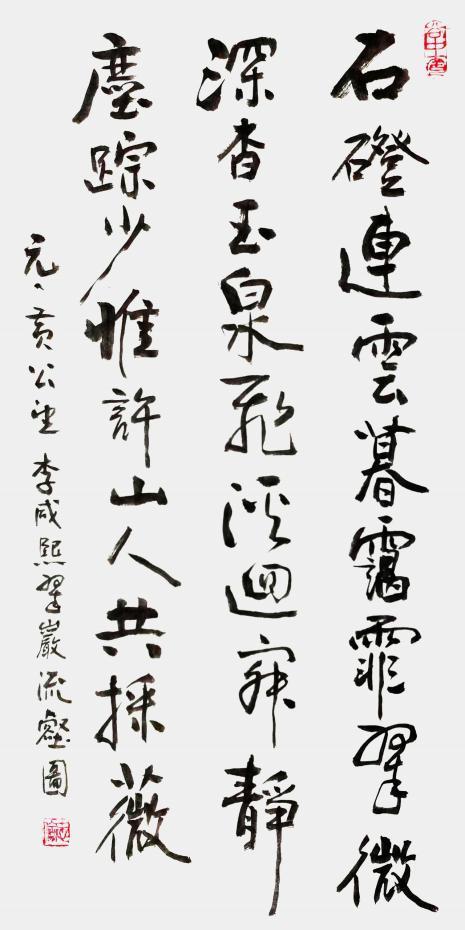 石磴連雲暮靄霏翠微
深杳玉泉飛溪迴寂靜
塵踪少惟許山人共採薇
元、黃公望 李咸熙翠巖流壑圖